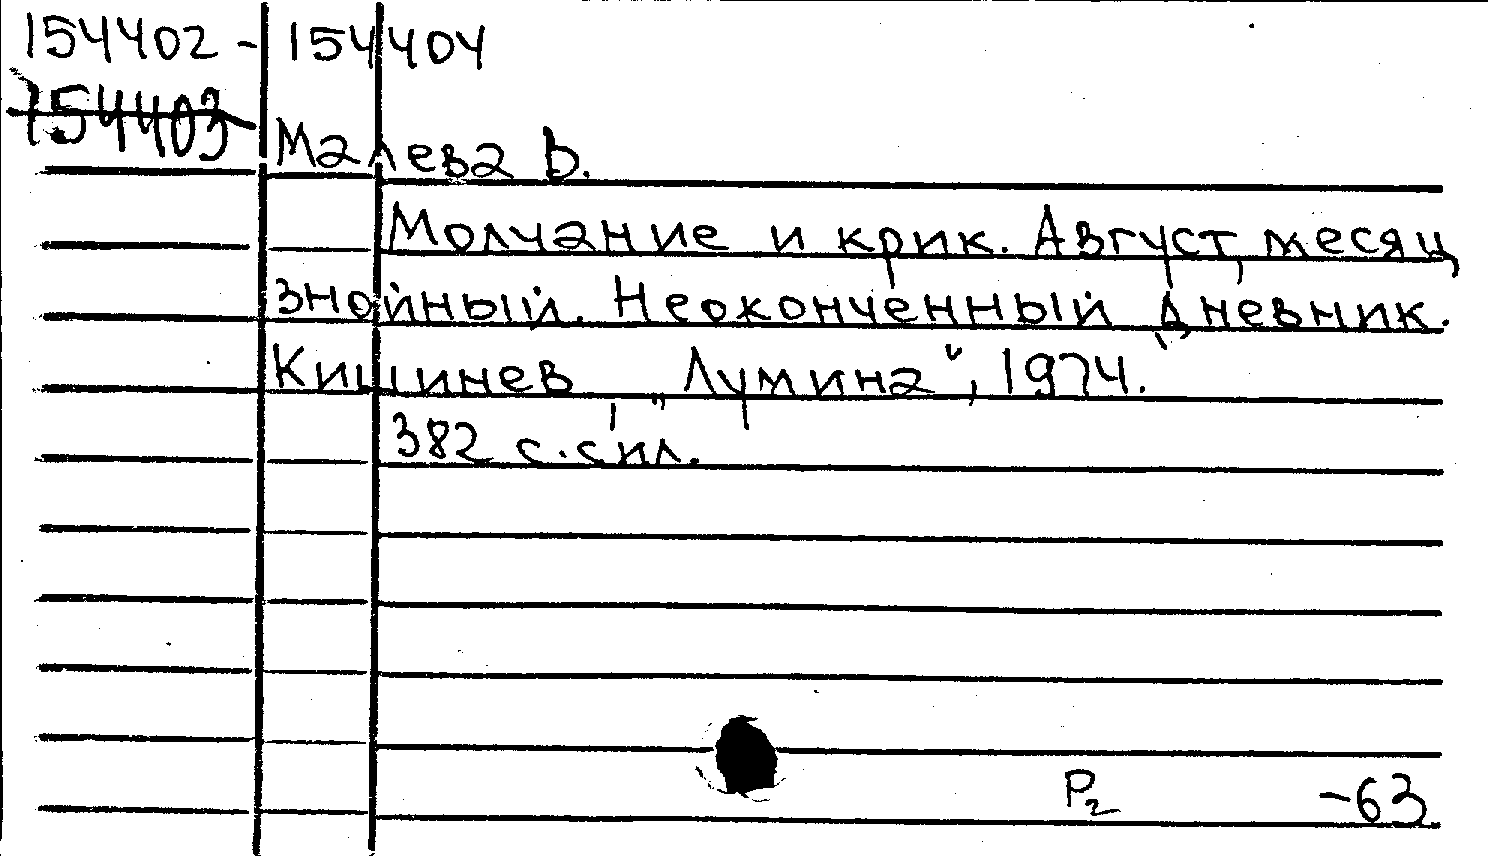 154402 - 154404
154403
Малева В.
Молчание и крик. Август, месяц
знойный. Неоконченный дневник.
Кишинев, "Лумина", 1974.
382 с. с ил.
Р2 -63